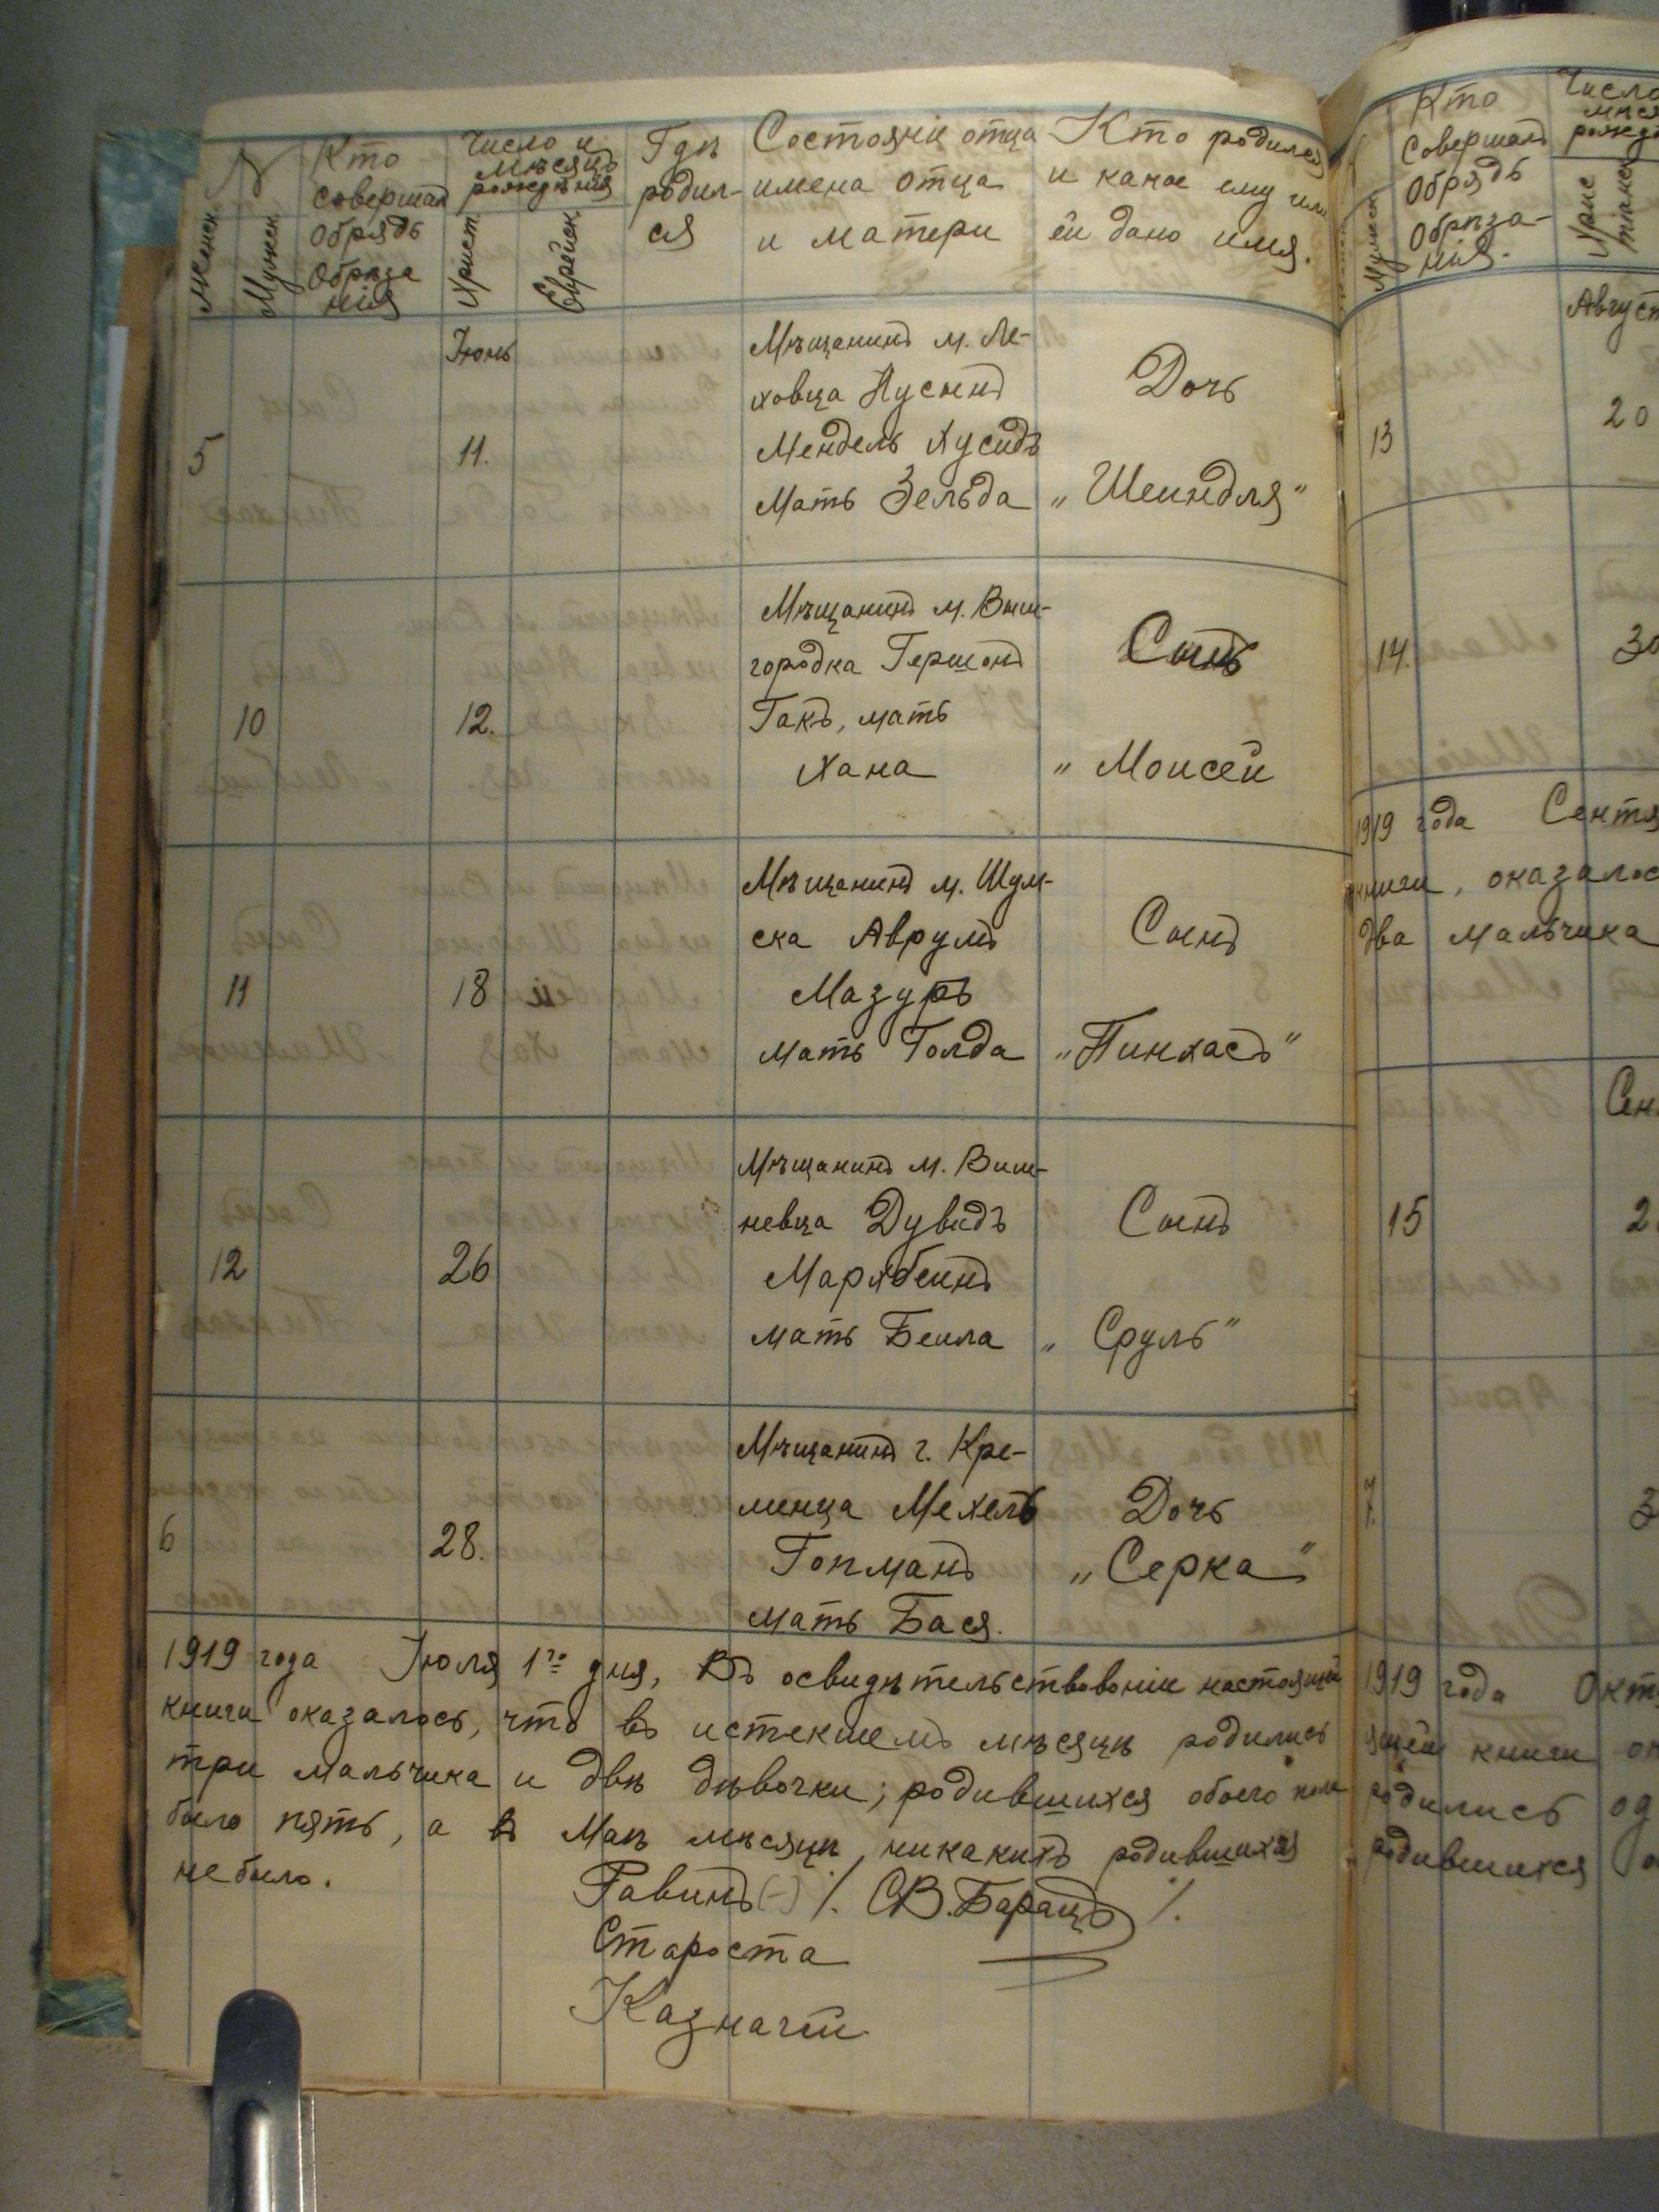 №
Женск.
Мужск.
Кто
совершал
обрядъ
обрѣза
нія
Число и
мѣсяцъ
рожденія
Христ.
Еврейск
Гдѣ
родил-
ся
Состояніе отца
имена отца
и матери
Кто родился
и какое ему или
ей дано имя.
Іюнь
5
11.
Мѣщанинъ м. Ле-
ховца Нусынъ
Мендель Хусидъ
Мать Зельда
Дочь
„Шейндля"
10
12.
Мѣщанинъ м. Выш-
городка Гершонъ
Гакъ, мать
Хана
Сынъ
„ Моисей
11
18
Мѣщанинъ м. Шум-
ска Аврумъ
Мазуръ
мать Голда
Сынъ
„Пинхасъ"
12
26
Мѣщанинъ м. Виш-
невца Дувидъ
Марябеинъ
мать Беила
Сынъ
„ Сруль"
6
28.
Мѣщанинъ г. Кре-
менца Мехель
Гопманъ
мать Бася.
Дочь
„Серка"
1919 года Іюля 1го дня, Въ освидѣтельствованіе настоящей
книги оказалось, что въ истекшемъ мѣсяцѣ родились
три мальчика и двѣ дѣвочки; родившихся обоего пола
было пять, а въ Маѣ мѣсяцѣ никакихъ родившихся
не было.
Равинъ (-) /. СВ. Барацъ /.
Староста
Казначей
Мужск
Кто
совершалъ
обрядъ
обрѣза-
нія.
Число
мѣся
рожд
Хрис
тіанск
Август
13
20
14.
30
1919 года Сентя
книги, оказалос
два мальчика
Сен
15
2
7.
3
1919 года Окт
ящей книги ок
родились од
родившихся о